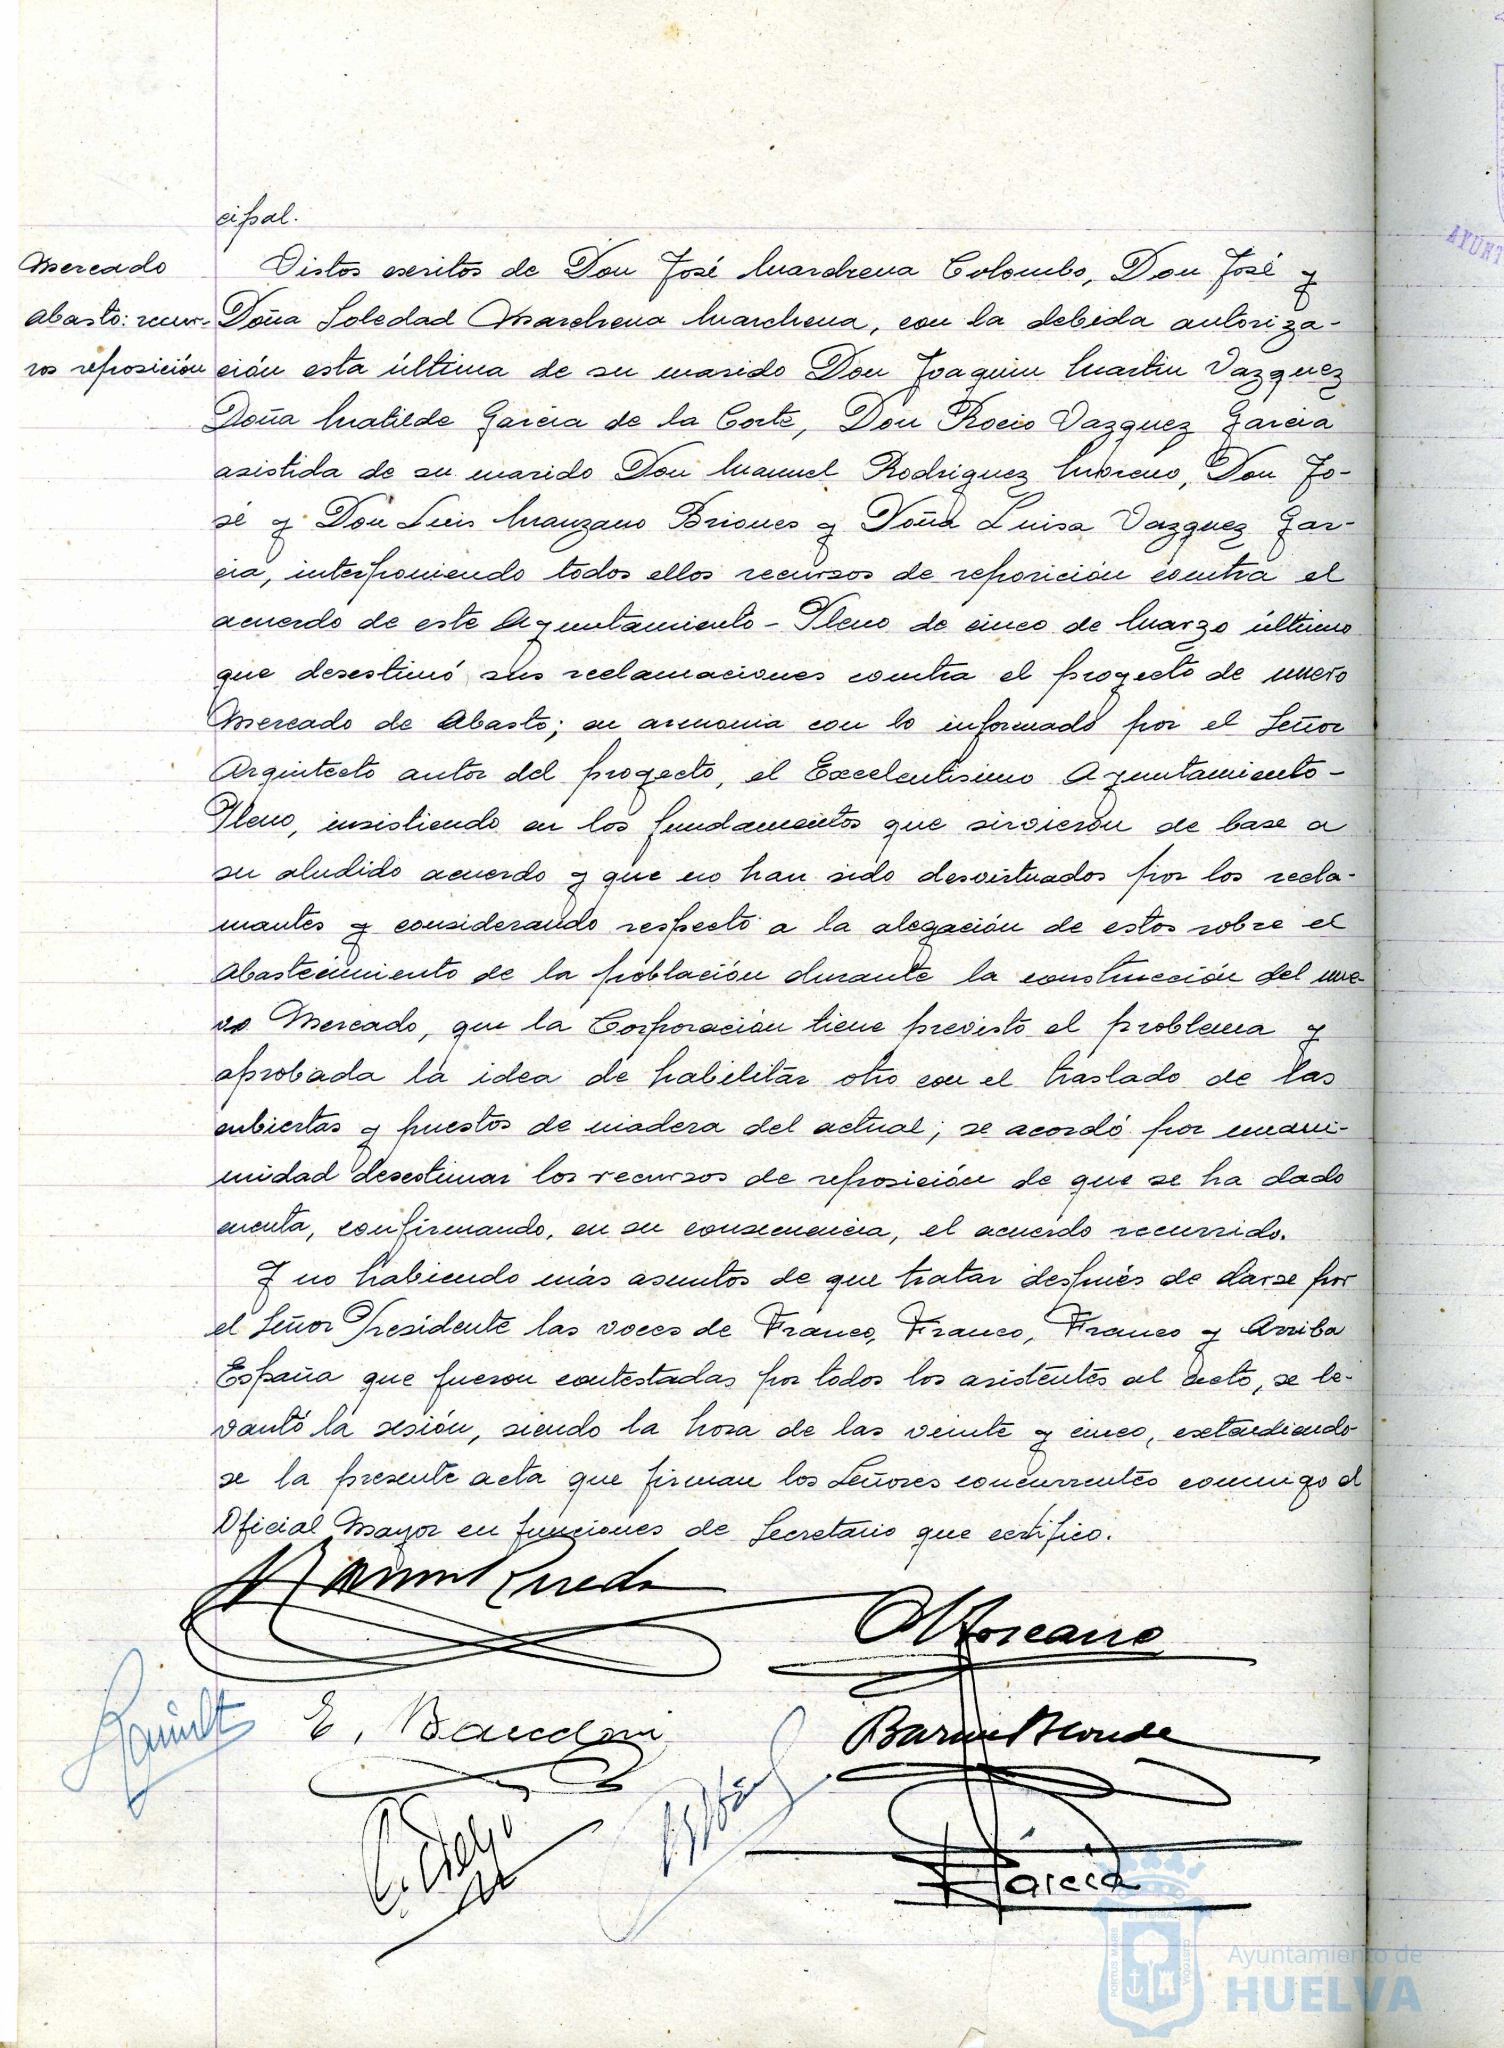 cipal.
Mercado
Abasto: recur-
sos reposición
Vistos escritos de Don José Marchena Colombo, Don José y
Doña Soledad Marchena Marchena, con la debida autoriza-
ción esta última de su marido Don Joaquin Martin Vazquez
Doña Matilde Garcia de la Corte, Don Rocio Vazquez Garcia
asistida de su marido Don Manuel Rodriguez Moreno, Don Jo-
sé y Don Luis Manzano Briones y Doña Luisa Vazquez Gar-
cia, interponiendo todos ellos recursos de reposición contra el
acuerdo de este Ayuntamiento-Pleno de cinco de Marzo último
que desestimó sus reclamaciones contra el proyecto de nuevo
Mercado de Abasto; en armonia con lo informado por el Señor
Arquitecto autor del proyecto, el Excelentisimo Ayuntamiento-
Pleno, insistiendo en los fundamentos que sirvieron de base a
su aludido acuerdo y que no han sido desvirtuados por los recla-
mantes y considerando respecto a la alegación de estos sobre el
abastecimiento de la población durante la construcción del nue-
vo Mercado, que la Corporación tiene previsto el problema y
aprobada la idea de habilitar otro con el traslado de las
cubiertas y puestos de madera del actual; se acordó por unani-
midad desestimar los recursos de reposición de que se ha dado
cuenta, confirmando, en su consecuencia, el acuerdo recurrido.
Y no habiendo más asuntos de que tratar después de darse por
el Señor Presidente las voces de Franco, Franco, Franco y Arriba
España que fueron contestadas por todos los asistentes al acto, se le-
vantó la sesión, siendo la hora de las veinte y cinco, extendiendo-
se la presente acta que firman los Señores concurrentes conmigo el
Oficial Mayor en funciones de Secretario que certifico.
E.
García
PORTUS MARIS
CUSTODIA
Ayuntamiento de
HUELVA
AYUNT